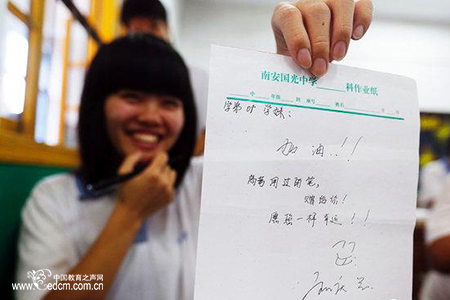 南安国光中学____科作业纸
学弟or学妹:
加油!!
高考用过的笔,
赠给你!
愿您一样幸运!!
中国教育之声网
edcm.com.cn